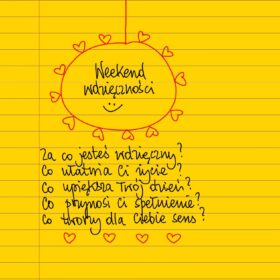 Weekend
wdzięczności
Za co jesteś wdzięczny?
Co ułatwia Ci życie?
Co upiększa Twój dzień?
Co przynosi Ci spełnienie?
Co tworzy dla Ciebie sens?